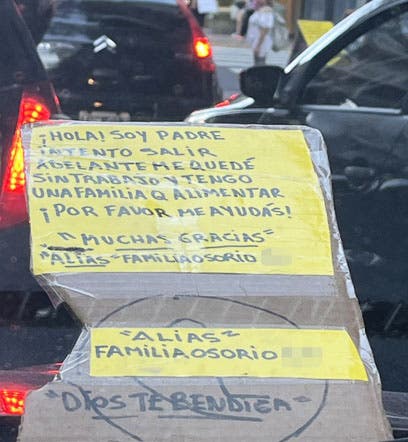 ¡HOLA! SOY PADRE
INTENTO SALIR
ADELANTE ME QUEDÉ
SIN TRABAJO Y TENGO
UNA FAMILIA Q ALIMENTAR
¡POR FAVOR ME AYUDÁS!
"MUCHAS GRACIAS"
"ALIAS" FAMILIAOSORIO
"ALIAS"
FAMILIAOSORIO
"DIOS TE BENDIGA"